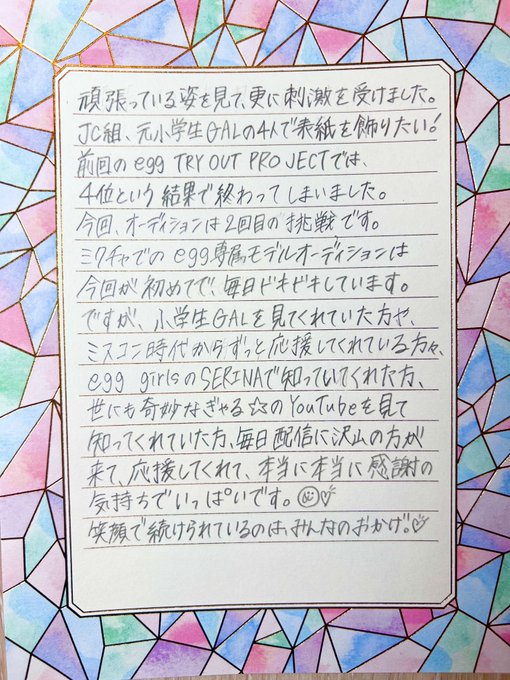 頑張っている姿を見て、更に刺激を受けました。
JC組、元小学生GALの4人で表紙を飾りたい!
前回のegg TRY OUT PROJECTでは、
4位という結果で終わってしまいました。
今回、オーディションは2回目の挑戦です。
ミクチャでのegg専属モデルオーディションは
今回が初めてで、毎日ドキドキしています。
ですが、小学生GALを見てくれていた方や、
ミスコン時代からずっと応援してくれている方々、
egg girlsのSERINAで知っていてくれた方、
世にも奇妙なぎゃる☆☆のYouTubeを見て
知ってくれていた方、毎日配信に沢山の方が
来て、応援してくれて、本当に本当に感謝の
気持ちでいっぱいです。
笑顔で続けられているのは、みんなのおかげ。